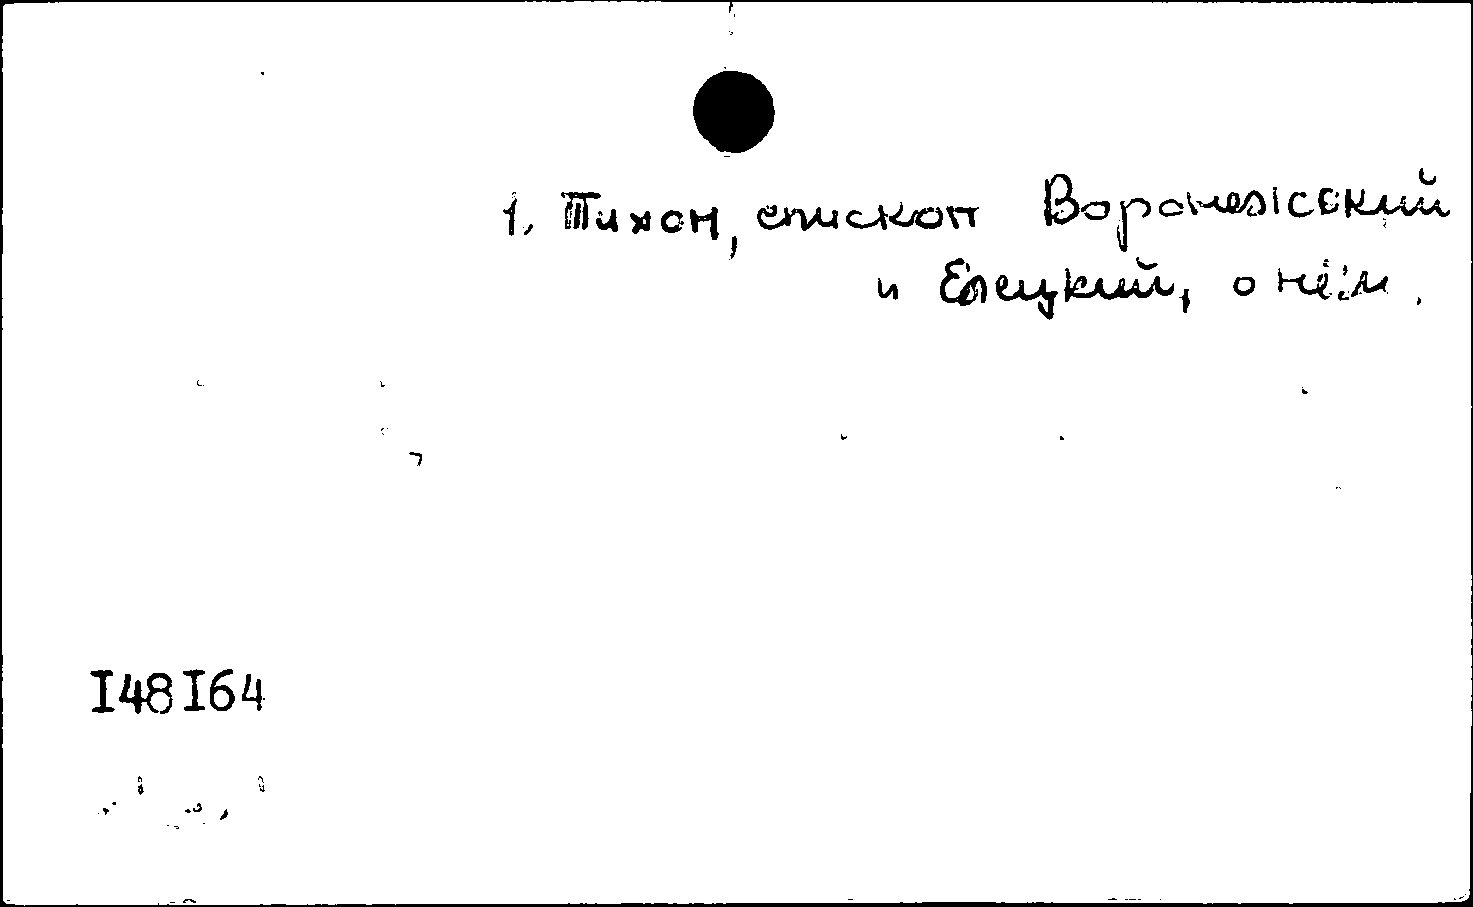 1. Тихон, епископ Воронежский
и Елецкий, о нём.
I48I64